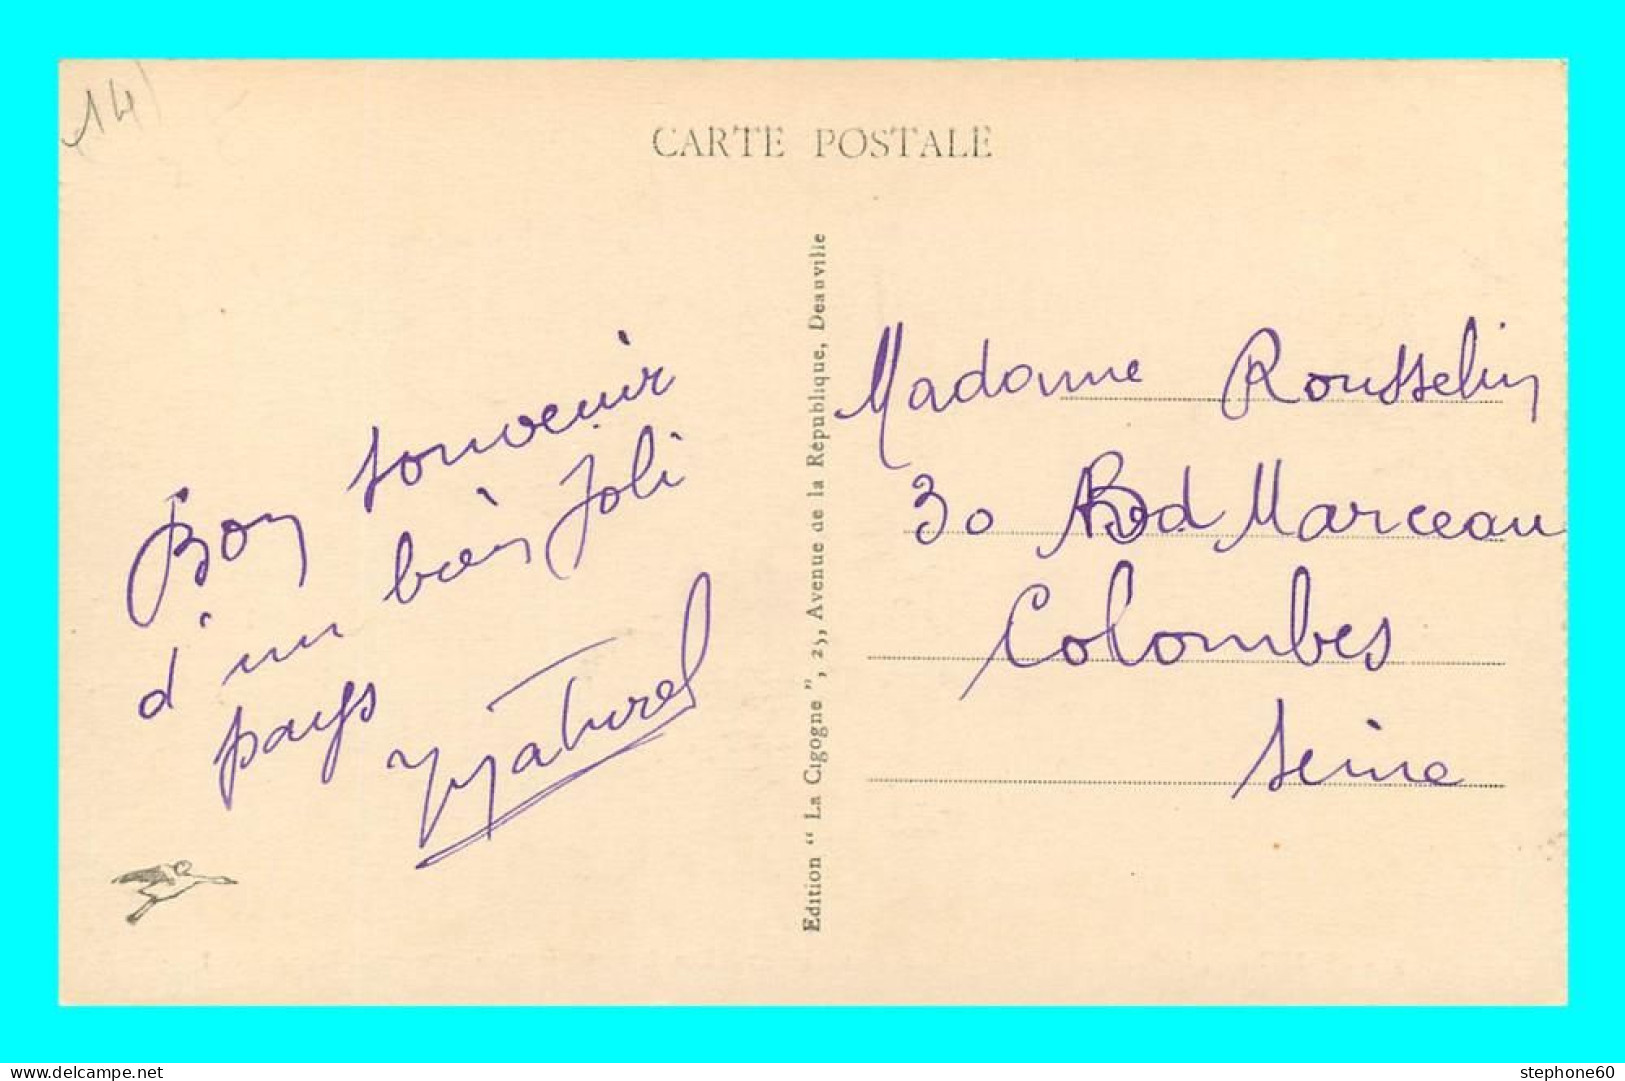 14
CARTE POSTALE
Bon souvenir
d'un bien Joli
pays
Edition “ La Cigogne ”, 25, Avenue de la République, Deauville
Madame Rousselin
30 Bd Marceau
Colombes
Seine
delcampe.net
stephone60